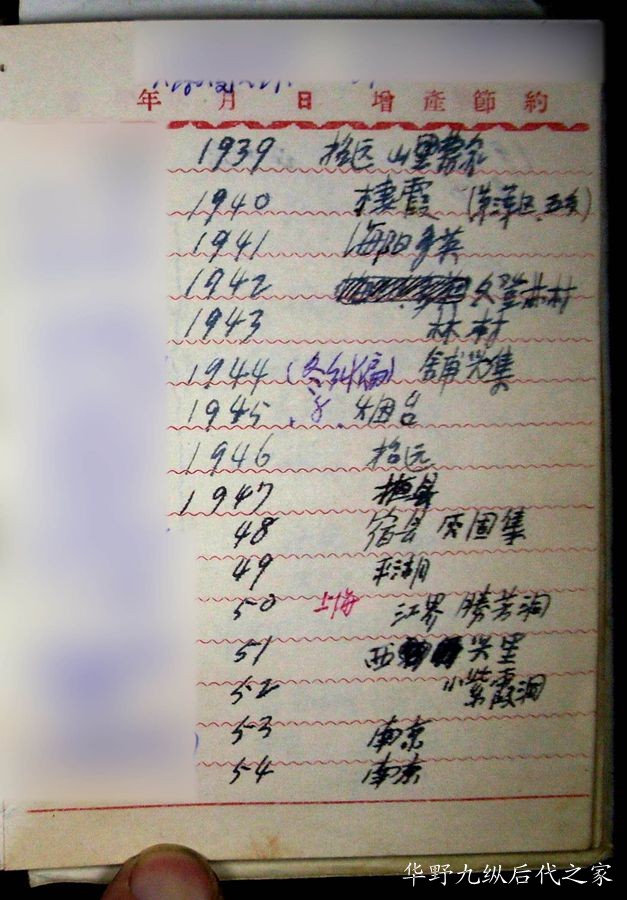 年 月 日 增產節約
1939 招远
1940 棲霞
1941 海阳
1942 村
1943 林村
1944 (冬纠偏) 集
1945 烟台
1946 招远
1947 县
48 宿县 固集
49 平湖
50 上海 江界 勝芳洞
51 西 兴里
52 小紫霞洞
53 南京
54 南京
华野九纵后代之家